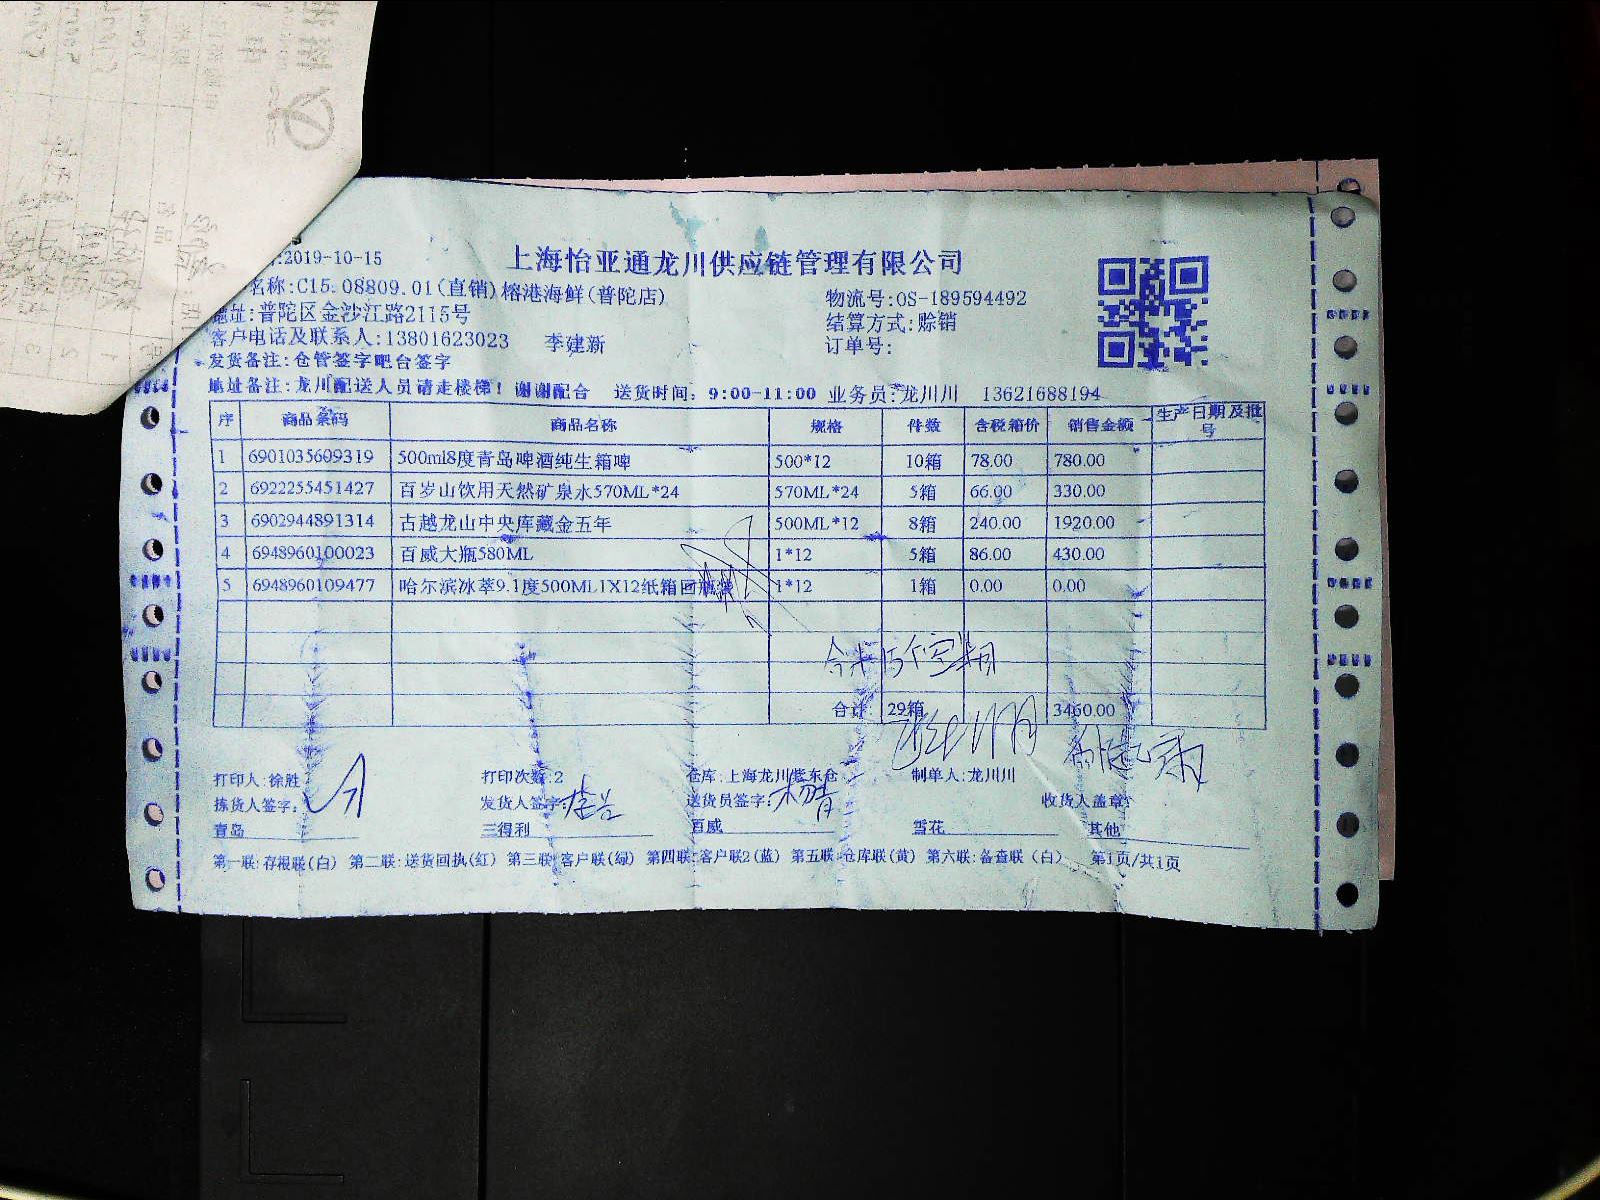 :2019-10-15
上海怡亚通龙川供应链管理有限公司
名称:C15.08809.01(直销)榕港海鲜(普陀店)
物流号:OS-189594492
地址:普陀区金沙江路2115号
结算方式:赊销
客户电话及联系人:13801623023 李建新
订单号:
发货备注:仓管签字吧台签字
地址备注:龙川配送人员请走楼梯!谢谢配合 送货时间:9:00-11:00 业务员:龙川川 13621688194
序 商品条码 商品名称 规格 件数 含税箱价 销售金额 生产日期及批号
1 6901035609319 500ml8度青岛啤酒纯生箱啤 500*12 10箱 78.00 780.00
2 6922255451427 百岁山饮用天然矿泉水570ML*24 570ML*24 5箱 66.00 330.00
3 6902944891314 古越龙山中央库藏金五年 500ML*12 8箱 240.00 1920.00
4 6948960100023 百威大瓶580ML 1*12 5箱 86.00 430.00
5 6948960109477 哈尔滨冰萃9.1度500ML1X12纸箱回瓶装 1*12 1箱 0.00 0.00
合计: 29箱 3460.00
打印人:徐胜 打印次数:2 仓库:上海龙川紫东仓 制单人:龙川川
拣货人签字: 发货人签字: 送货员签字: 收货人盖章:
青岛 三得利 百威 雪花 其他
第一联:存根联(白) 第二联:送货回执(红) 第三联:客户联(绿) 第四联:客户联2(蓝) 第五联:仓库联(黄) 第六联:备查联(白) 第1页/共1页